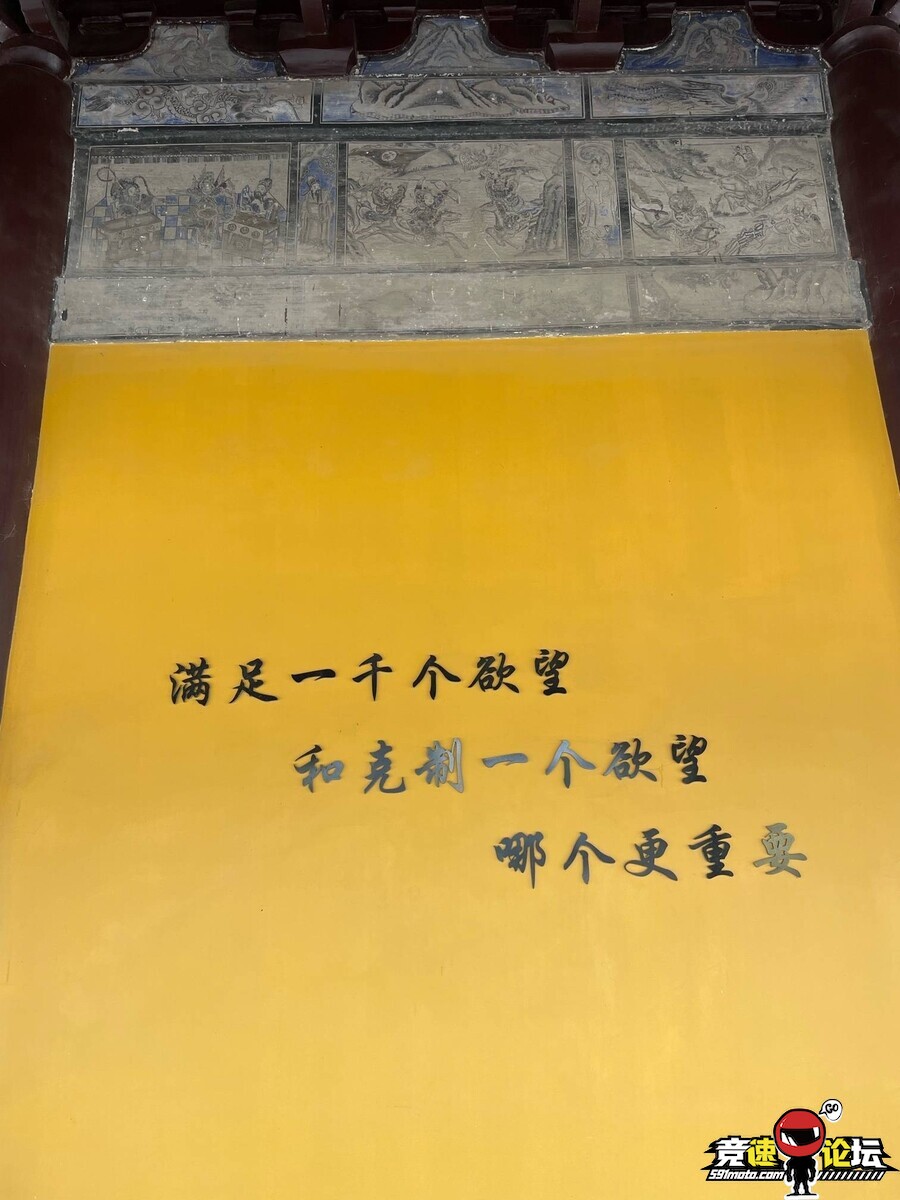 满足一千个欲望
和克制一个欲望
哪个更重要
GO
竞速论坛
591moto.com